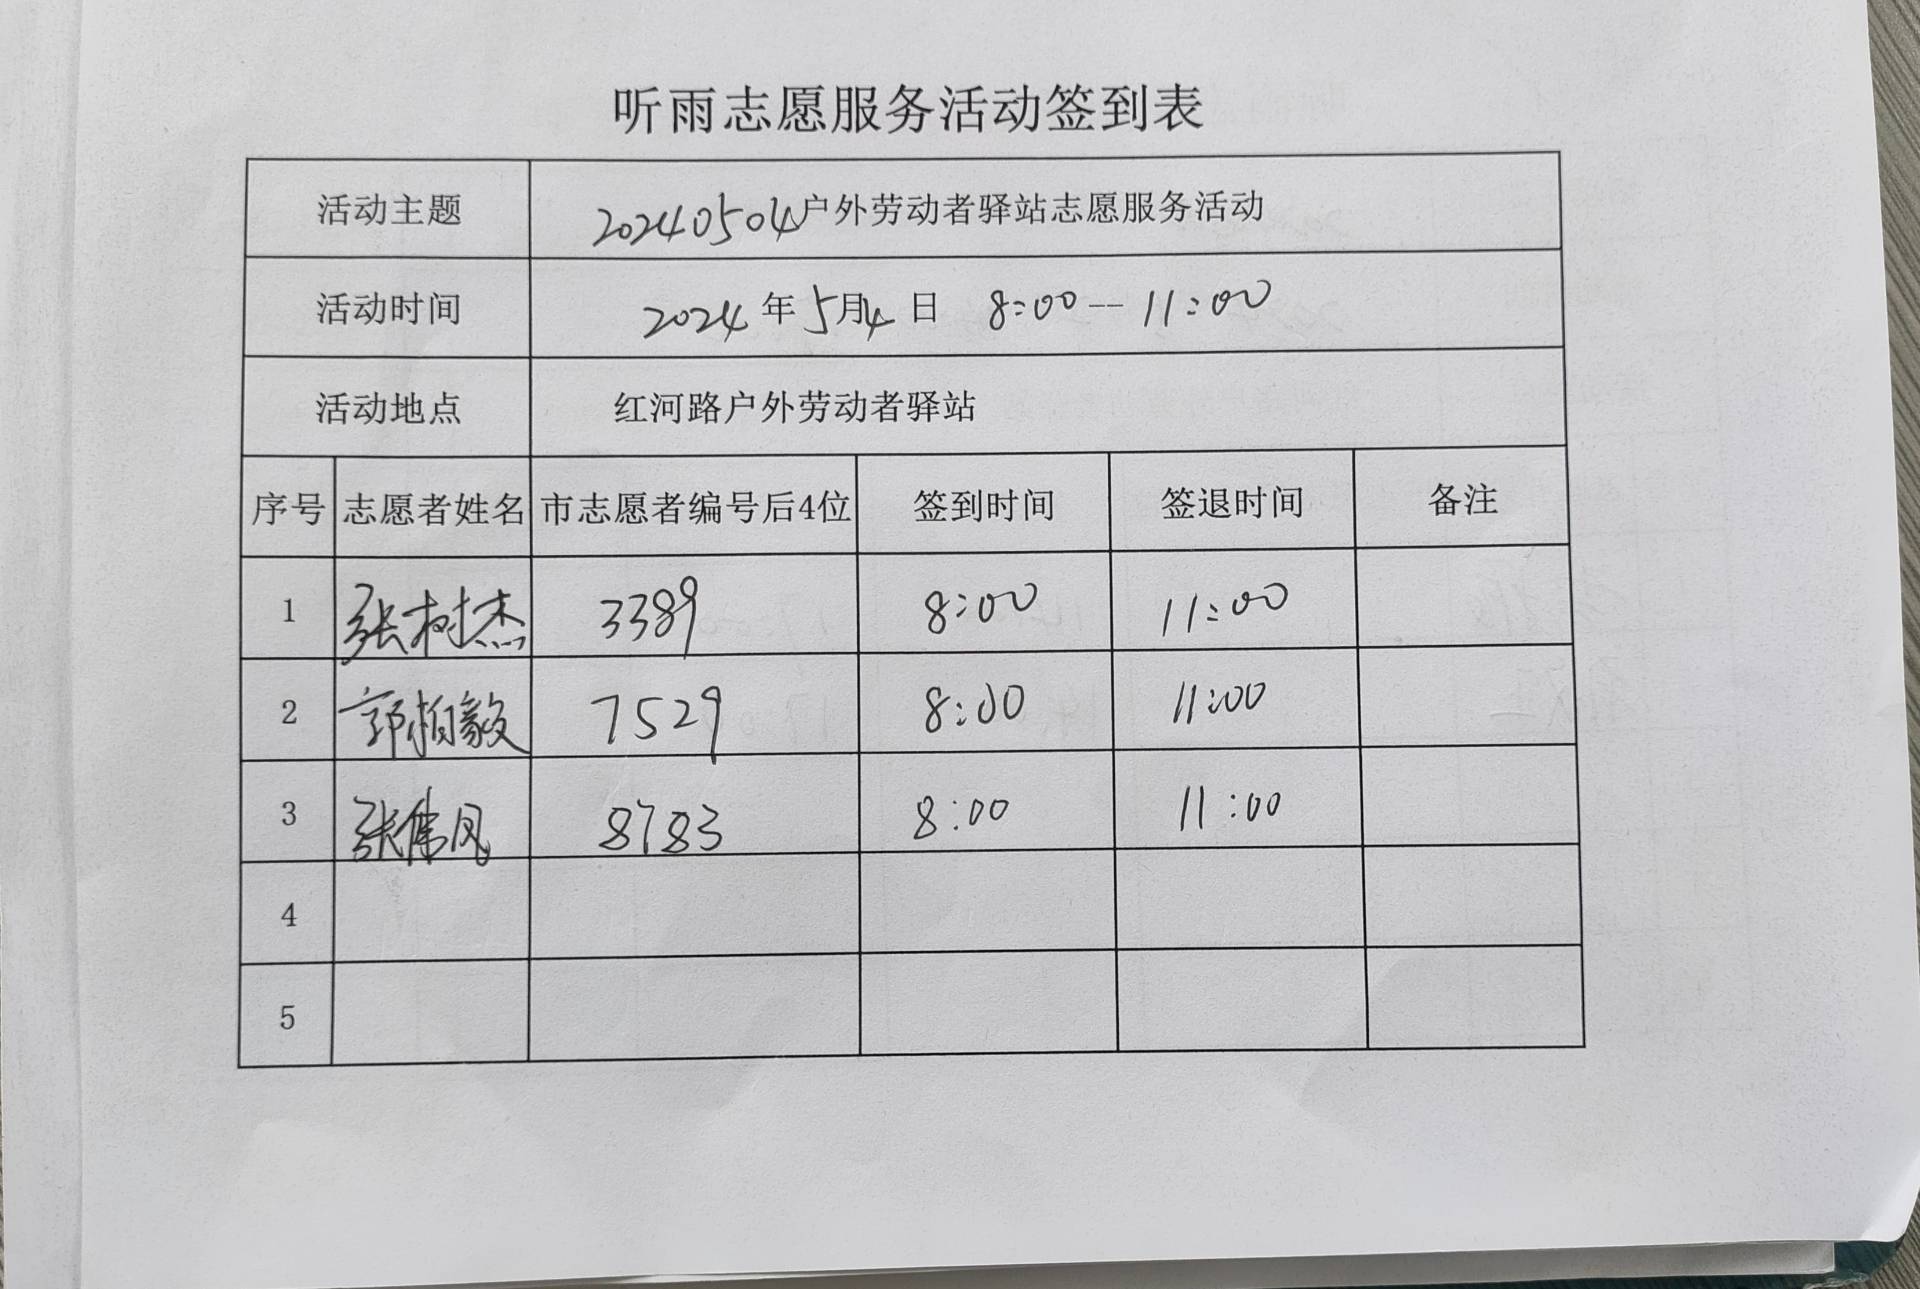 听雨志愿服务活动签到表
活动主题 20240504户外劳动者驿站志愿服务活动
活动时间 2024年5月4日 8:00--11:00
活动地点 红河路户外劳动者驿站
序号 志愿者姓名 市志愿者编号后4位 签到时间 签退时间 备注
1 张树杰 3389 8:00 11:00
2 郭柏毅 7529 8:00 11:00
3 张伟凤 8783 8:00 11:00
4
5